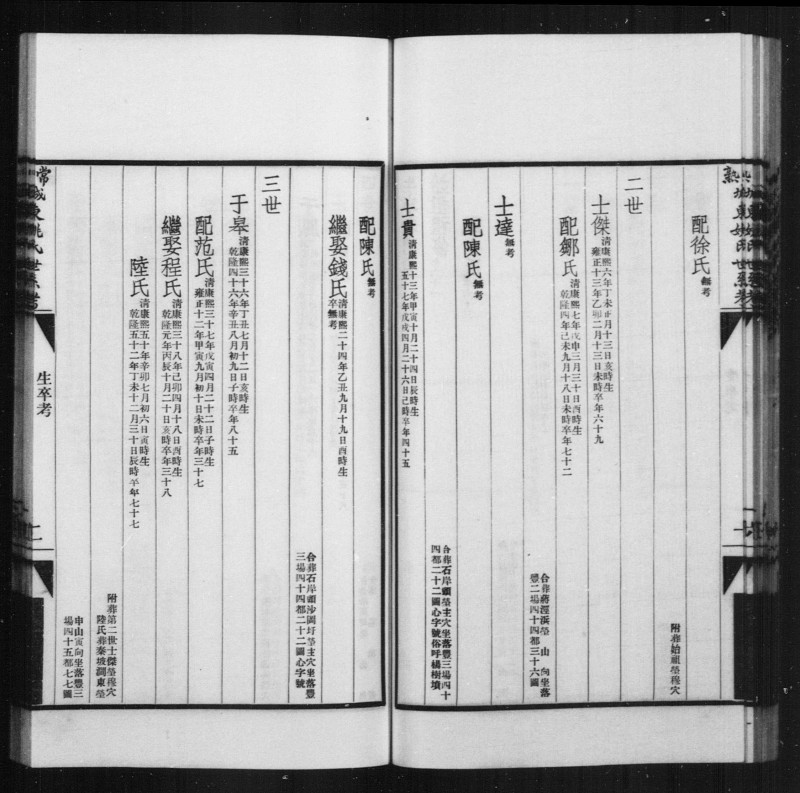 配徐氏 無考
附葬始祖塋穆穴
二世
士傑 清康熙六年丁未正月十三日亥時生
雍正十三年乙卯二月十三日未時卒年六十九
配鄒氏 清康熙七年戊申三月三十日酉時生
乾隆四年己未九月十八日未時卒年七十二
合葬蔣涇浜塋 山 向坐落
豐二場四十四都三十六圖
士達 無考
配陳氏 無考
合葬石岸頭塋主穴坐落豐三場四十
四都二十二圖心字號俗呼楊樹墳
士貴 清康熙十三年甲寅十月二十四日辰時生
五十七年戊戌四月二十六日己時卒年四十五
配陳氏 無考
繼娶錢氏 清康熙二十四年乙丑九月十九日酉時生
卒無考
合葬石岸頭沙圖圩塋主穴坐落豐
三場四十四都二十二圖心字號
三世
于皋 清康熙三十六年丁丑七月十二日亥時生
乾隆四十六年辛丑八月初九日子時卒年八十五
配范氏 清康熙三十七年戊寅四月二十二日子時生
雍正十二年甲寅九月初十日未時卒年三十七
繼娶程氏 清康熙三十八年己卯四月十八日酉時生
乾隆元年丙辰十月二十日亥時卒年三十八
陸氏 清康熙五十年辛卯七月初六日寅時生
乾隆五十二年丁未十二月三十日辰時卒年七十七
附葬第二世士傑塋穆穴
陸氏葬秦坡澗東塋
申山寅向坐落豐三
場四十五都七七圖
生卒考